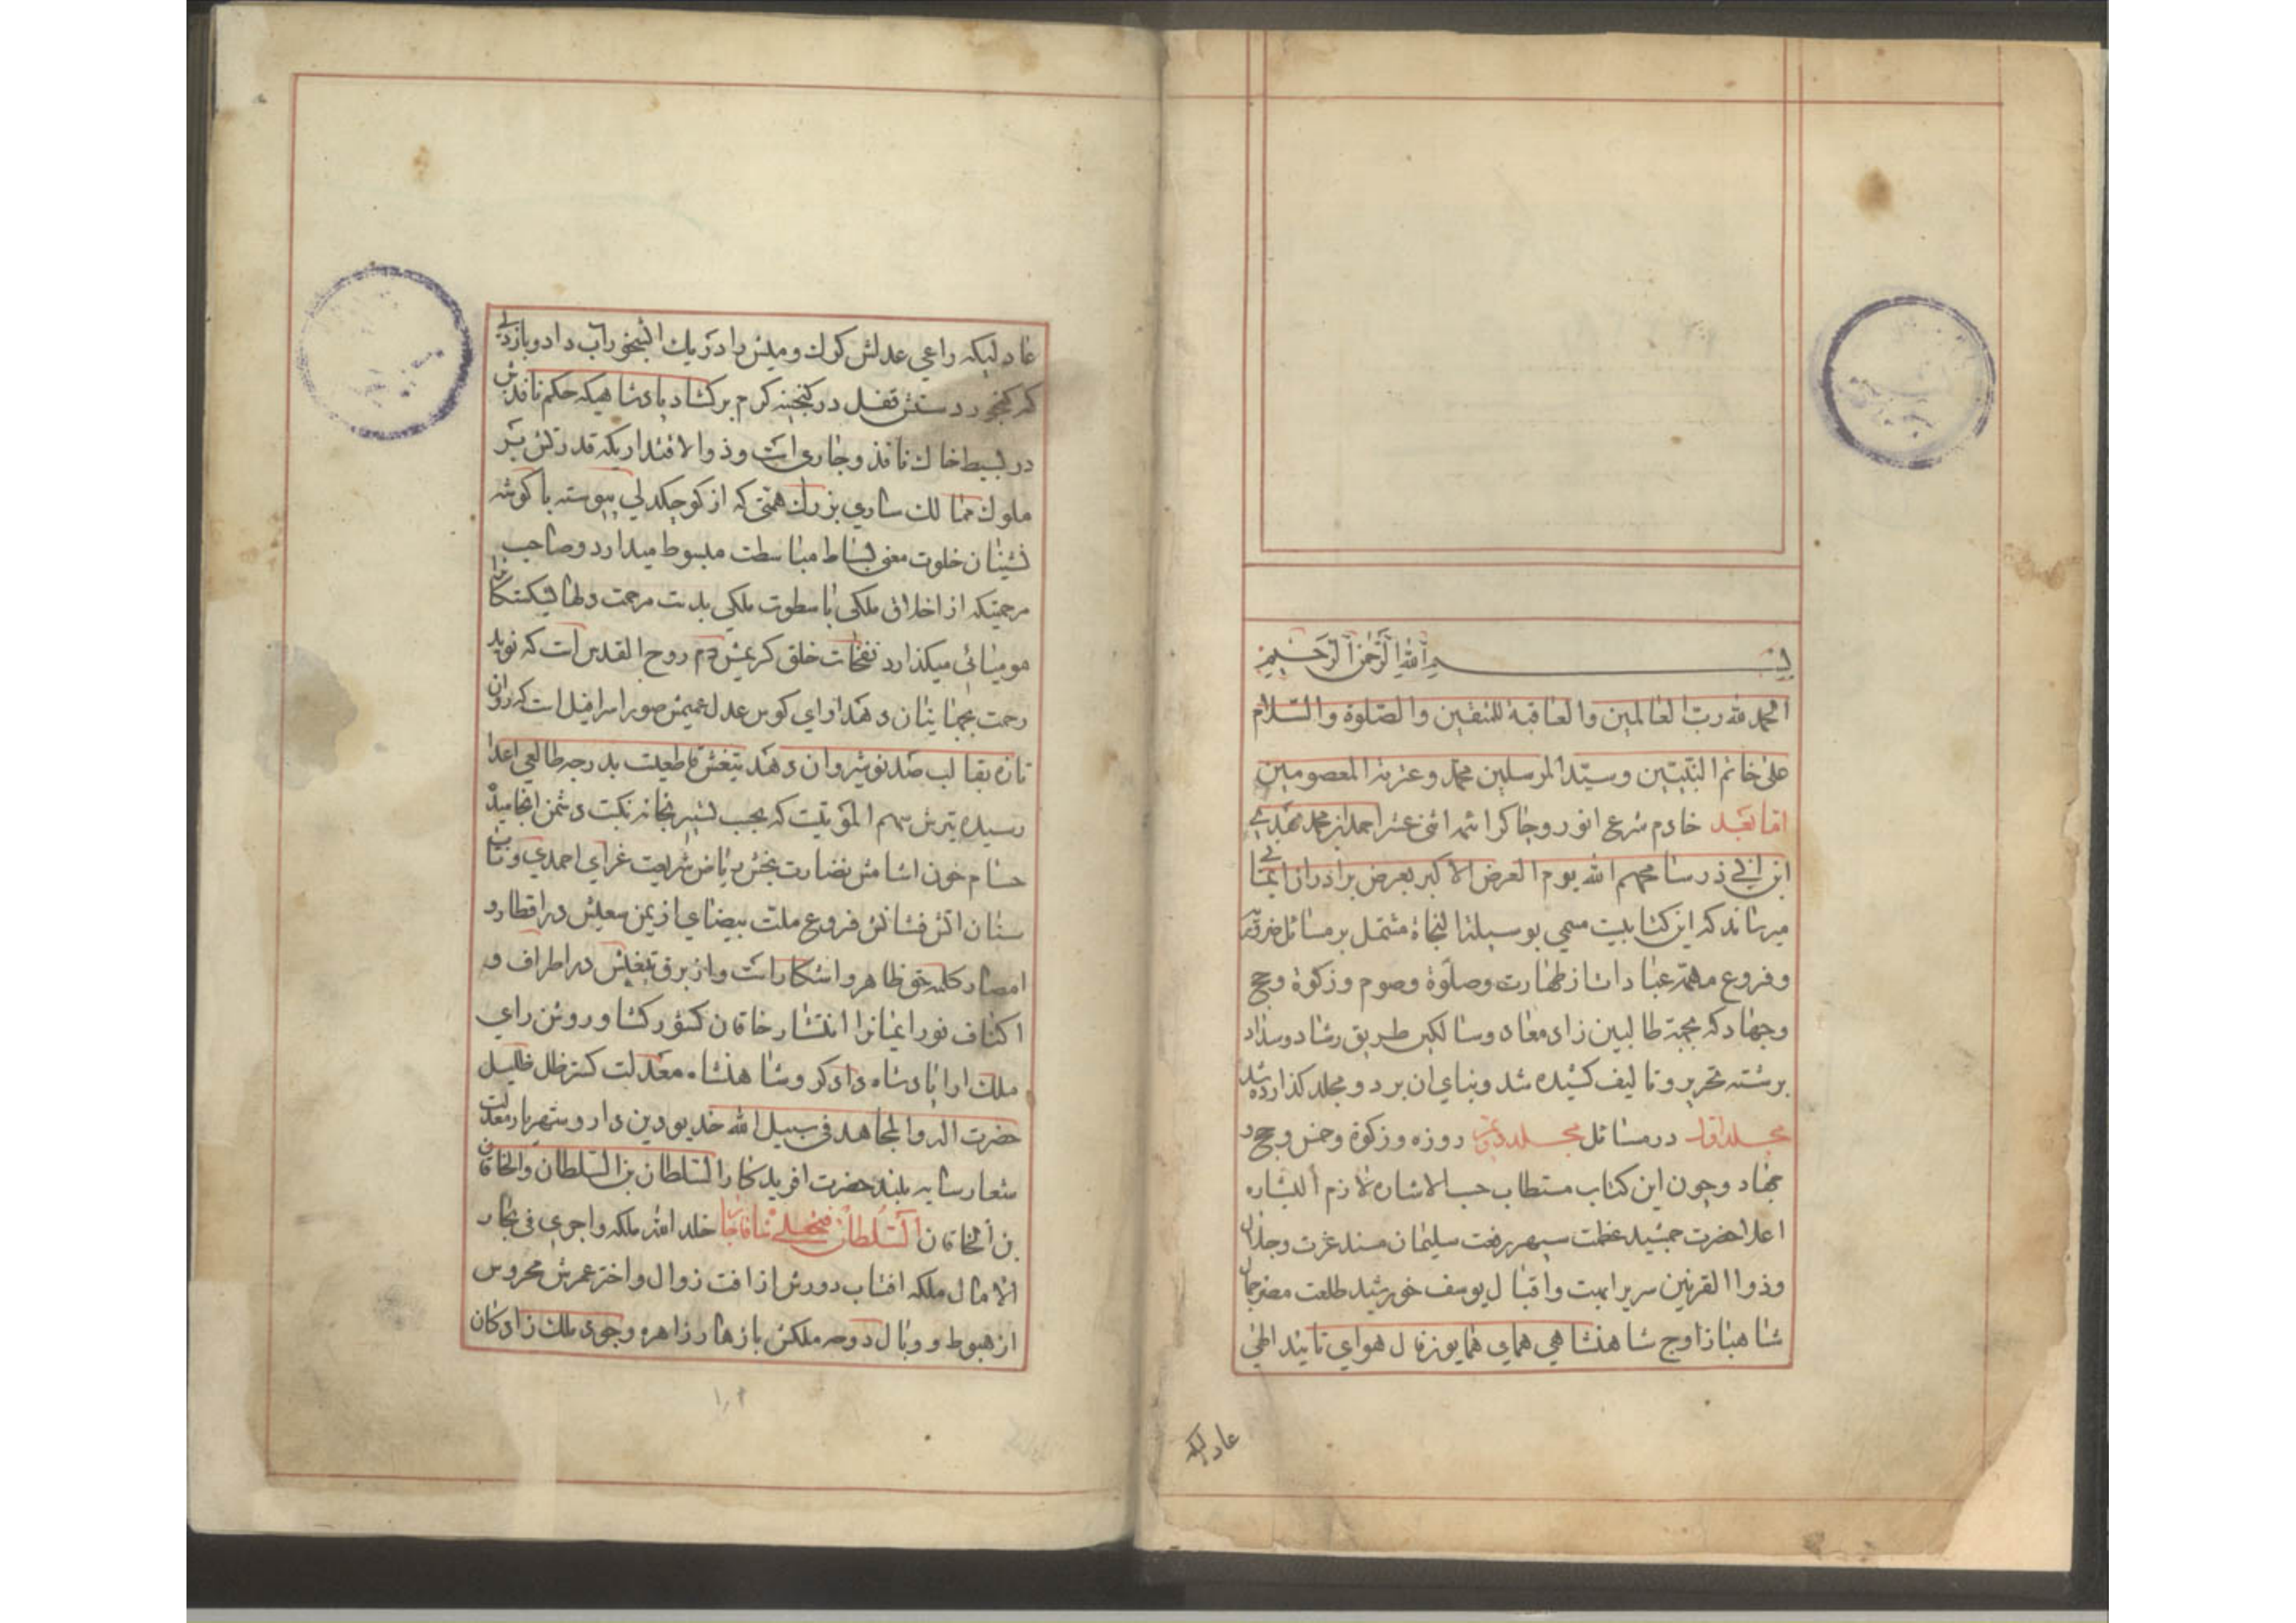 بسم الله الرحمن الرحیم
الحمد لله رب العالمین والعاقبة للمتقین والصلوة والسلام
علی خاتم النبیین وسید المرسلین محمد وعترته المعصومین
اما بعد خادم شرع انور وچاکر ائمه اثنی عشر احمد بن محمد مهدی
ابن ابی ذر سامحهم الله یوم العرض الاکبر بعرض برادران ایمانی
میرساند که این کتابیست مسمی بوسیلة النجاة مشتمل بر مسائل ضروریه
وفروع مهمه عبادات از طهارت وصلوة وصوم وزکوة وحج
وجهاد که بجهة طالبین زاد معاد وسالکین طریق رشاد وسداد
برشته تحریر وتالیف کشیده شد وبنای ان بر دو مجلد کذارده شد
مجلد اول در مسائل مجلد دویم روزه وزکوة وخمس وحج و
جهاد وچون این کتاب مستطاب حسب الاشاره لازم البشاره
اعلاحضرت جمشید عظمت سپهر رفعت سلیمان مسند عزت وجلال
وذوالقرنین سریر ابهت واقبال یوسف خورشید طلعت مصر جمال
شاهباز اوج شاهنشاهی همای همایون فال هوای تائید الهی
عادلیکه
عادلیکه راعی عدلش کرك ومیش را در یك ابشخور اب داد وباذلی
که کنجور دستش قفل در کنجینه کرم برکشاد پادشاهیکه حکم نافذش
در بسیط خاك نافذ وجاری است وذوالاقتداریکه قدرتش بر
ملوك ممالك ساری بزرك همتی که از کوچکدلی پیوسته با کوشه
نشینان خلوت معنی بساط مباسطت مبسوط میدارد وصاحب
مرحمتیکه از اخلاق ملکی با سطوت ملکی بدست مرحمت دلهای شکستکانرا
مومیائی میکذارد نفخات خلق کریمش دم روح القدس است که نوید
رحمت بجهانیان دهد اوای کوس عدل عمیمش صور اسرافیل است که روان
تازه بقالب صد نوشیروان دهد تیغش قاطعیست بدرجه طالعی اعدا
رسیده تیرش سهم الموتیست که بجیب تسییر بخانه نکبت دشمن انجامیده
حسام خون اشامش نضارت بخش ریاض شریعت غرای احمدی وتاب
سنان اتش فشانش فروغ ملت بیضای از یمن سعیش در اقطار و
امصار کلمه حق ظاهر واشکار است واز برق تیغش در اطراف و
اکناف نور ایمانرا انتشار خاقان کشور کشا وروشن رای
ملك ارا پادشاه دادکر وشاهنشاه معدلت کستر ظل ظلیل
حضرت اله والمجاهد فی سبیل الله خدیو دین دار وشهریار معدلت
شعار سایه بلند حضرت افریدکار السلطان بن السلطان والخاقان
بن الخاقان السلطان فتحعلی شاه قاجار خلد الله ملکه واجری فی بحار
الامال ملکه افتاب دورش از افت زوال واختر عمرش محروس
از هبوط ووبال دوحه ملکش بازهار زاهره وجوی ملك زادکان